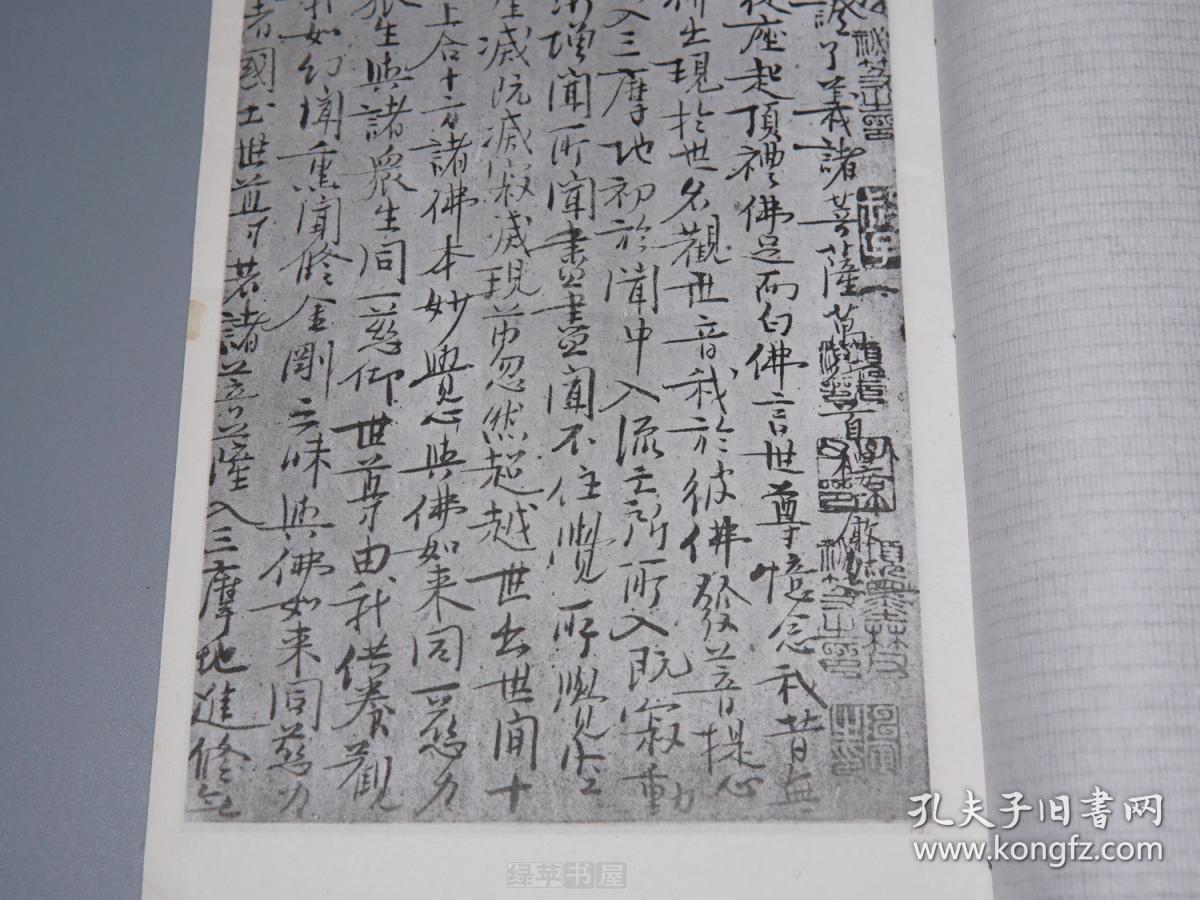 證了義諸菩薩萬首楞嚴
從座起頂禮佛足而白佛言世尊憶念我昔無
佛出現於世名觀世音我於彼佛發菩提心
入三摩地初於聞中入流亡所所入既寂動
漸增聞所聞盡盡聞不住覺所覺空
生滅既滅寂滅現前忽然超越世出世間十
上合十方諸佛本妙覺心與佛如来同一慈力
衆生與諸衆生同一悲仰世尊由我供養觀
如幻聞熏聞修金剛三昧與佛如来同慈力
者國土世尊若諸菩薩入三摩地進修無
孔夫子旧书网
www.kongfz.com
绿苹书屋